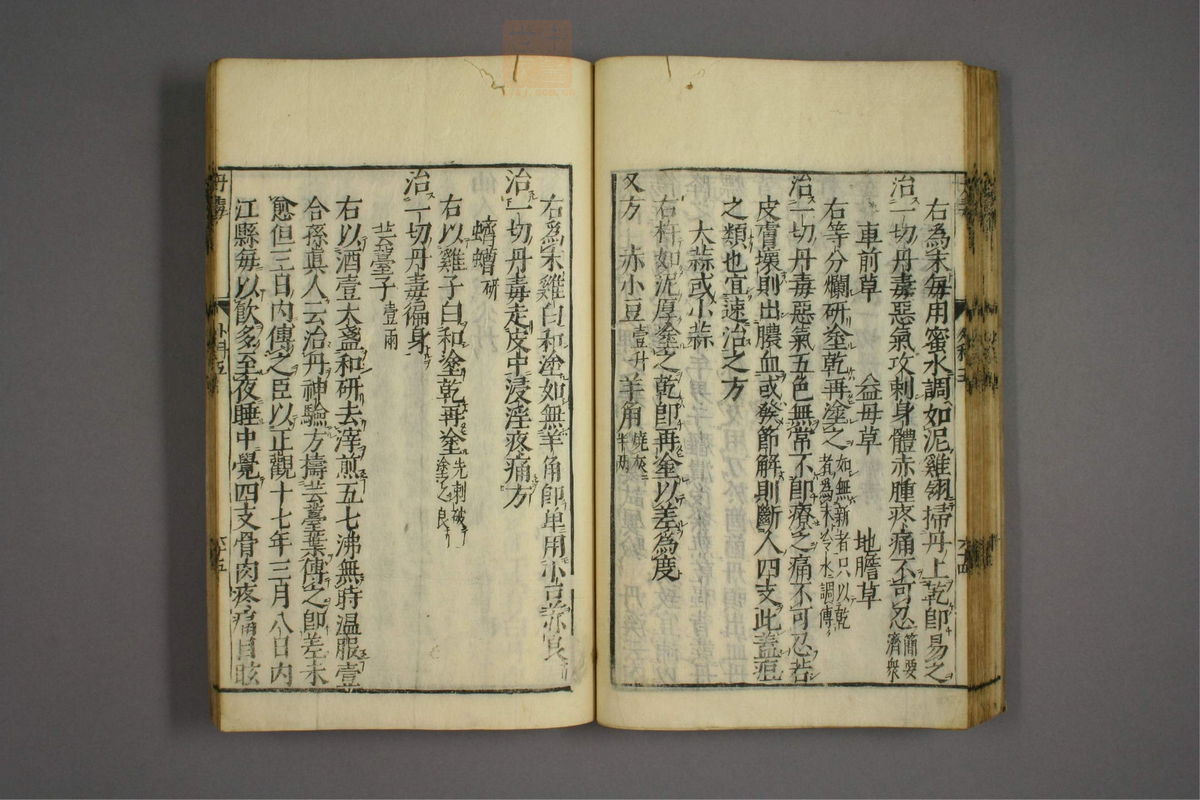 右為末每用蜜水調如泥雞翎掃丹上乾即易之
治一切丹毒惡氣攻刺身體赤腫疼痛不可忍簡要濟衆
車前草 益母草 地膽草
右等分爛研塗乾再塗之如無新者只以乾者為末水調傅
治一切丹毒惡氣五色無常不即療之痛不可忍若
皮膚壞則出膿血或發節解則斷人四支此蓋疽
之類也宜速治之方
大蒜或小蒜
右杵如泥厚塗之乾即再塗以差為度
又方 赤小豆壹升 羊角燒灰半兩
右為末雞白和塗如無羊角即単用小豆亦良
治一切丹毒走皮中浸淫疼痛方
蠐螬研
右以雞子白和塗乾再塗先刺破塗之良
治一切丹毒徧身
芸薹子壹兩
右以酒壹大盞和研去滓煎五七沸無時温服壹
合孫真人云治丹神驗方擣芸薹葉傅之即差未
愈但三日内傅之臣以正觀十七年三月八日内
江縣每以飲多至夜睡中覺四支骨肉疼痛目眩
丹毒